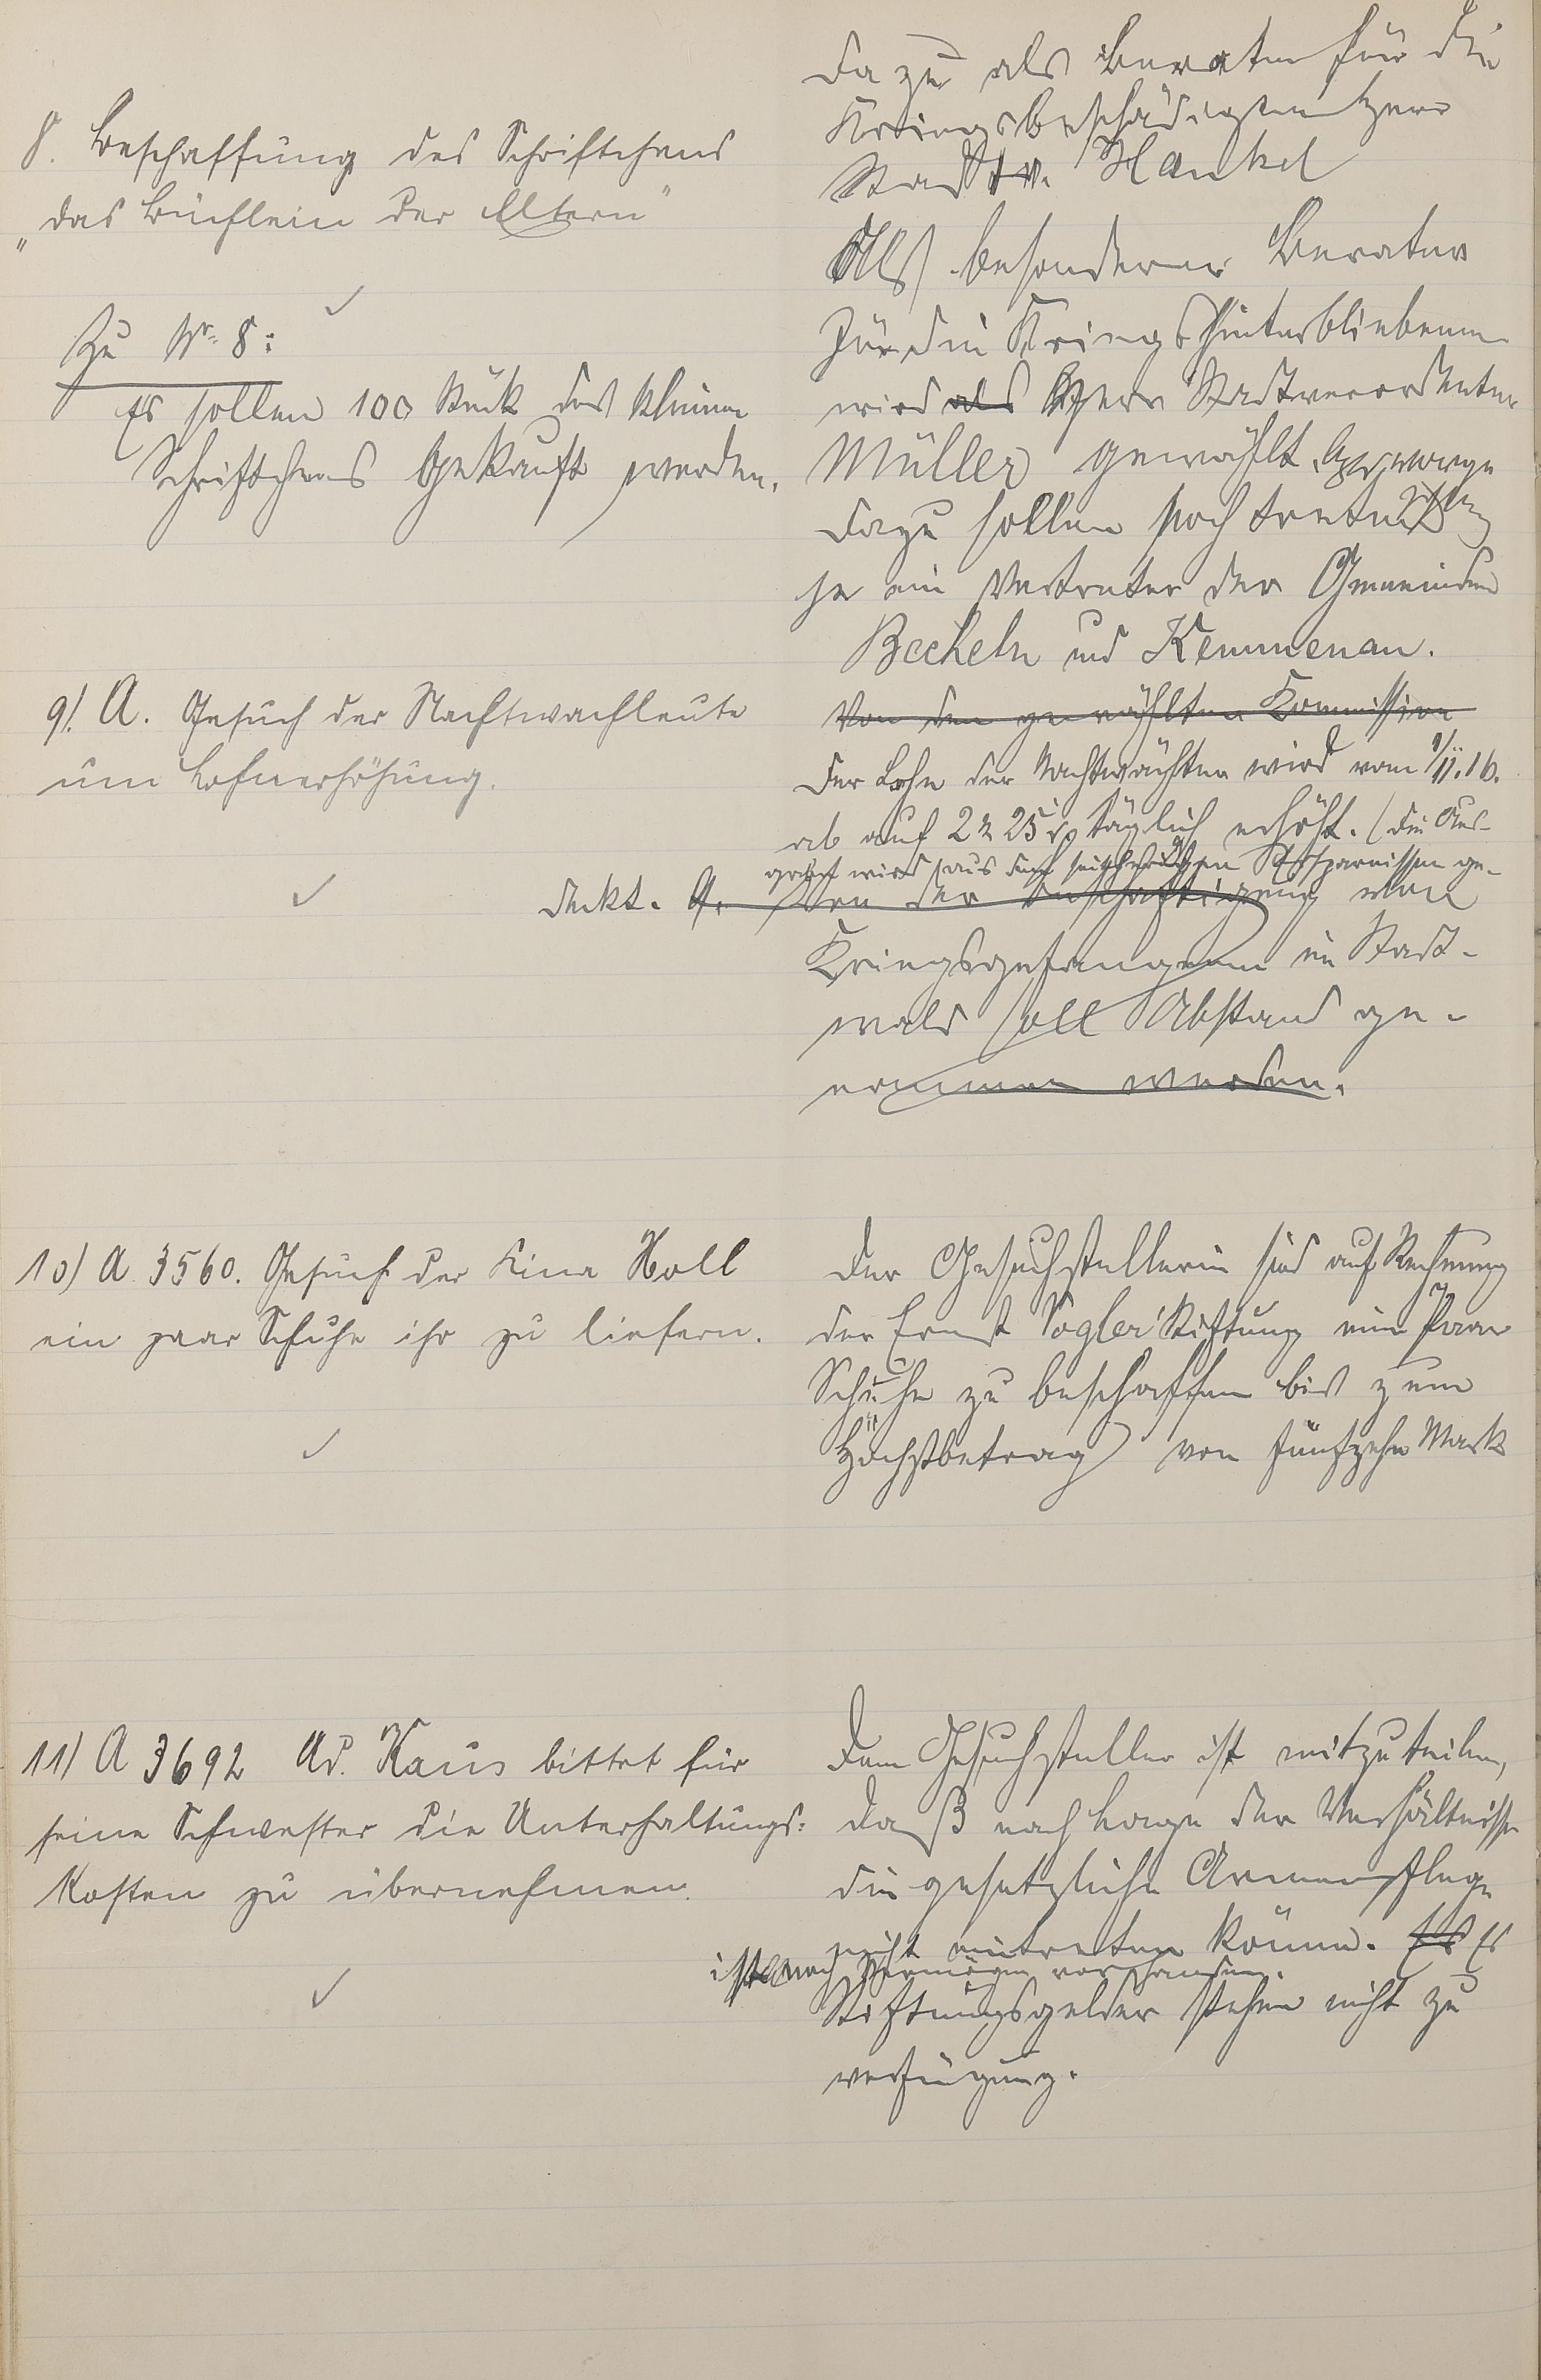 8. Beschaffung des Schriftchens
„das Büchlein der Eltern"
Zu Nr. 8:
Es sollen 100 Stück des kleinen
Schriftchens gekauft werden.
dazu als Berater für die
Kriegsbeschädigten Herr
Stadtv. Hankel
Als besonderer Berater
für die Kriegshinterbliebenen
wird als Herr Stadtverordneter
Müller gewählt.
Dazu sollen noch treten
je ein Vertreter der Gemeinden
Becheln und Kemmenau.
Von den gewählten Kommission
9). A. Gesuch der Nachtwachleute
um Lohnerhöhung.
Der Lohn der Nachtwächter wird vom 1/11.16.
ab auf 2 M 25 täglich erhöht. (Die Aus-
gabe wird aus den seitherigen Ersparnissen ge-
deckt. Von der Beschäftigung von
Kriegsgefangenen im Stadt-
wald soll Abstand ge-
nommen werden.
10) A 3560. Gesuch der Lina Holl
ein paar Schuhe ihr zu liefern.
Der Gesuchstellerin sind auf Rechnung
der Ernst Vogler Stiftung ein Paar
Schuhe zu beschaffen bis zum
Höchstbetrag von fünfzehn Mark
11) A 3692 Ad. Kaus bittet für
seine Schwester die Unterhaltungs-
kosten zu übernehmen.
Dem Gesuchsteller ist mitzuteilen,
daß nach Lage der Verhältnisse
die gesetzliche Armenpflege
nicht eintreten könne. Es Es
ist noch Vermögen vorhanden.
Stiftungsgelder stehen nicht zu
verfügung.